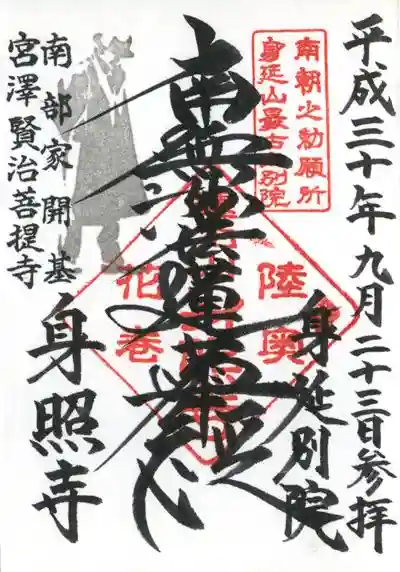 平成三十年九月二十三日参拝
南朝之勅願所
身延山最古別院
身延別院
陸奥
南無妙法蓮華経
花巻
南部家開基
宮澤賢治菩提寺
身照寺